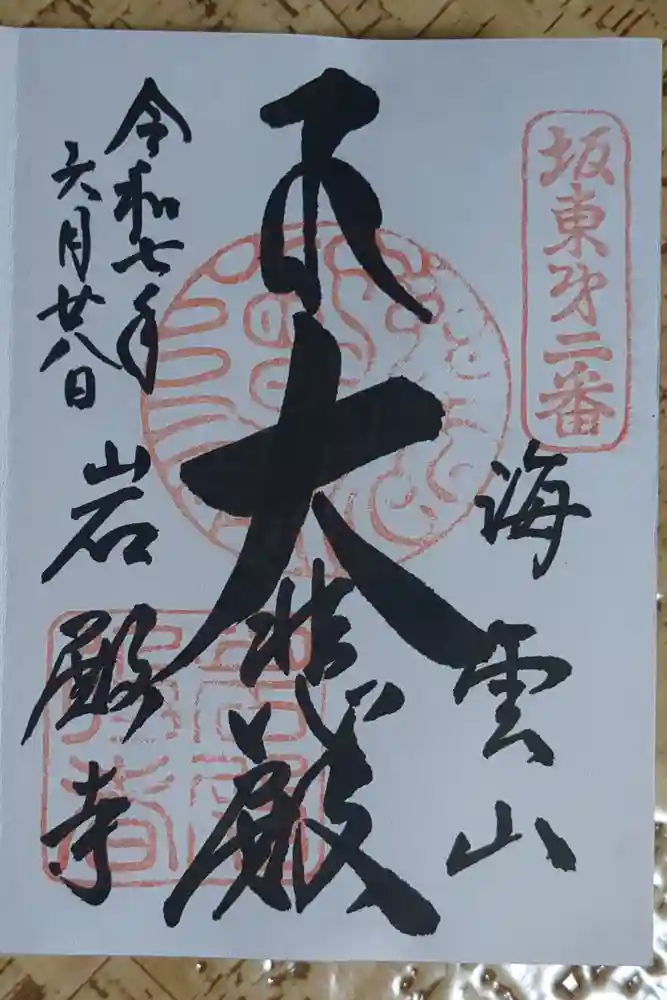 坂東第二番
海雲山
大悲殿
令和七年
六月廿八日
岩殿寺